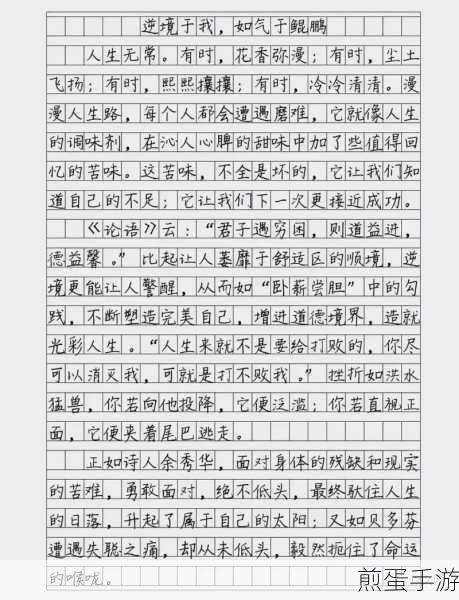 逆境于我，如气于鲲鹏
人生无常。有时，花香弥漫；有时，尘土
飞扬；有时，熙熙攘攘；有时，冷冷清清。漫
漫人生路，每个人都会遭遇磨难，它就像人生
的调味剂，在沁人心脾的甜味中加了些值得回
忆的苦味。这苦味，不全是坏的，它让我们知
道自己的不足；它让我们下一次更接近成功。
《论语》云：“君子遇穷困，则道益进，
德益馨。”比起让人萎靡于舒适区的顺境，逆
境更能让人警醒，从而如“卧薪尝胆”中的勾
践，不断塑造完美自己，增进道德境界，造就
光彩人生。“人生来就不是要给打败的，你尽
可以消灭我，可就是打不败我。”挫折如洪水
猛兽，你若向他投降，它便泛滥；你若直视正
面，它便夹着尾巴逃走。
正如诗人余秀华，面对身体的残缺和现实
的苦难，勇敢面对，绝不低头，最终驮住人生
的日落，升起了属于自己的太阳；又如贝多芬
遭遇失聪之痛，却从未低头，毅然扼住了命运
的喉咙。
煎蛋手游